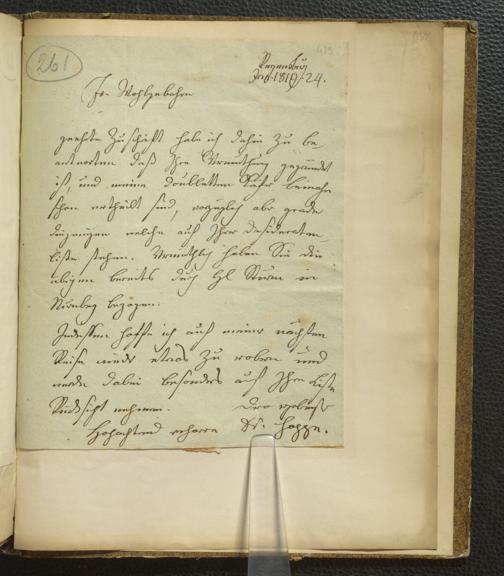 261
Regensburg
1819-24.
Ew. Wohlgebohrn
geehrte Zuschrift habe ich dahin zu be-
antworten daß Ihre Vermuthung gegründet
ist, und meine doubletten Käfer beinahe
schon vertheilt sind, vorzüglich aber grade
diejenigen welche auf Ihrer Desideraten-
liste stehen. Vermuthlich haben Sie die
übrigen bereits durch H. Sturm in
Nürnberg bezogen.
Indessen hoffe ich auf meiner nächsten
Reise wieder etwas zu erobern und
werde dabei besonders auf Ihre Liste
Rücksicht nehmen.
Hochachtend verharre Dr. Hoppe.